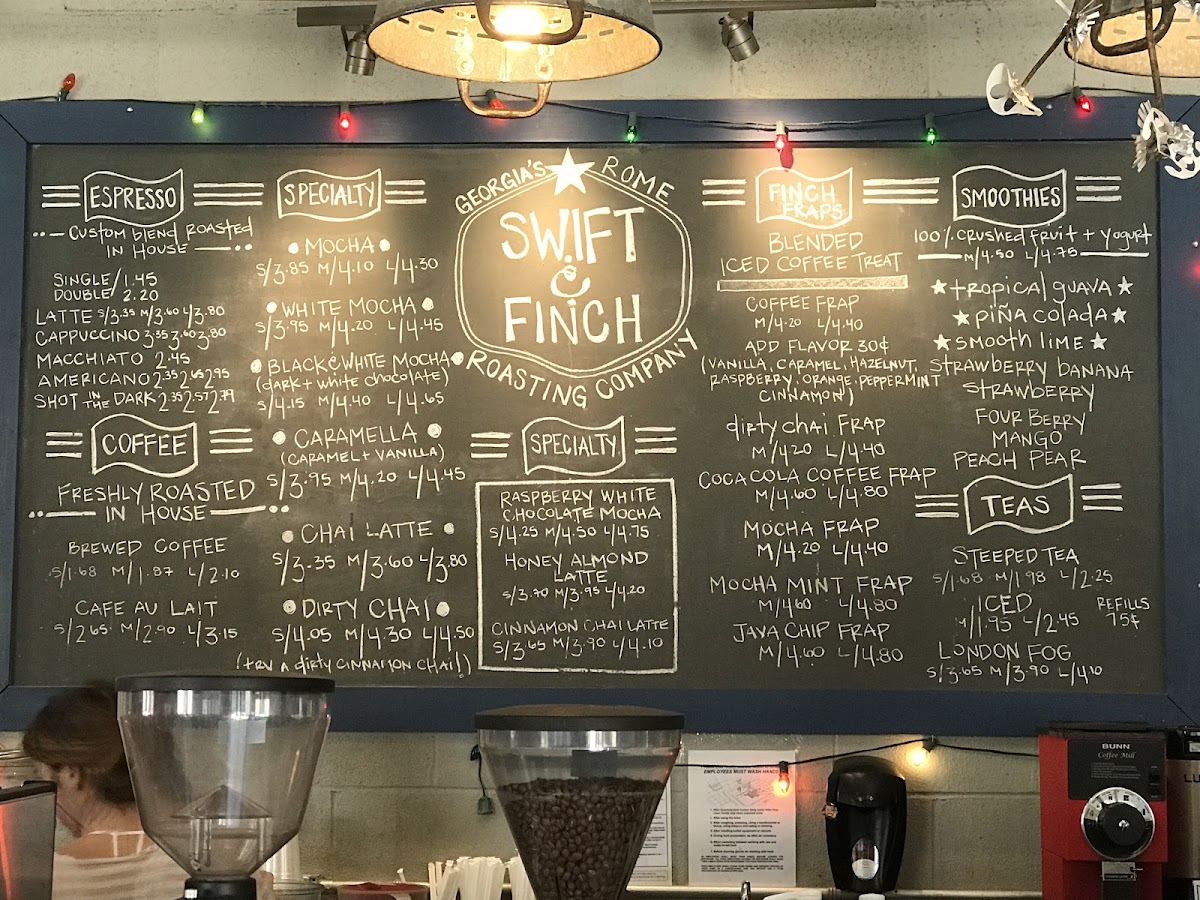 ESPRESSO
Custom blend roasted
IN HOUSE
SINGLE/1.45
DOUBLE/2.20
LATTE S/3.35 M/3.60 L/3.80
CAPPUCCINO 3.35 3.60 3.80
MACCHIATO 2.45
AMERICANO 2.35 2.65 2.95
SHOT IN THE DARK 2.35 2.57 2.79
COFFEE
FRESHLY ROASTED
IN HOUSE
BREWED COFFEE
S/1.68 M/1.87 L/2.10
CAFE AU LAIT
S/2.65 M/2.90 L/3.15
SPECIALTY
MOCHA
S/3.85 M/4.10 L/4.30
WHITE MOCHA
S/3.95 M/4.20 L/4.45
BLACK & WHITE MOCHA
(dark + white chocolate)
S/4.15 M/4.40 L/4.65
CARAMELLA
(CARAMEL + VANILLA)
S/3.95 M/4.20 L/4.45
CHAI LATTE
S/3.35 M/3.60 L/3.80
DIRTY CHAI
S/4.05 M/4.30 L/4.50
(try a dirty cinnamon chai!)
GEORGIA'S ROME
SWIFT
&
FINCH
ROASTING COMPANY
SPECIALTY
RASPBERRY WHITE
CHOCOLATE MOCHA
S/4.25 M/4.50 L/4.75
HONEY ALMOND
LATTE
S/3.70 M/3.95 L/4.20
CINNAMON CHAI LATTE
S/3.65 M/3.90 L/4.10
FINCH
FRAPS
BLENDED
ICED COFFEE TREAT
COFFEE FRAP
M/4.20 L/4.40
ADD FLAVOR 30¢
(VANILLA, CARAMEL, HAZELNUT,
RASPBERRY, ORANGE, PEPPERMINT
CINNAMON)
dirty chai FRAP
M/4.20 L/4.40
COCA COLA COFFEE FRAP
M/4.60 L/4.80
MOCHA FRAP
M/4.20 L/4.40
MOCHA MINT FRAP
M/4.60 L/4.80
JAVA CHIP FRAP
M/4.60 L/4.80
SMOOTHIES
100% crushed fruit + yogurt
M/4.50 L/4.75
tropical guava
piña colada
smooth lime
strawberry banana
strawberry
FOUR BERRY
MANGO
PEACH PEAR
TEAS
STEEPED TEA
S/1.68 M/1.98 L/2.25
ICED
M/1.95 L/2.45
REFILLS
75¢
LONDON FOG
S/3.65 M/3.90 L/4.10
EMPLOYEES MUST WASH HANDS
BUNN
Coffee Mill